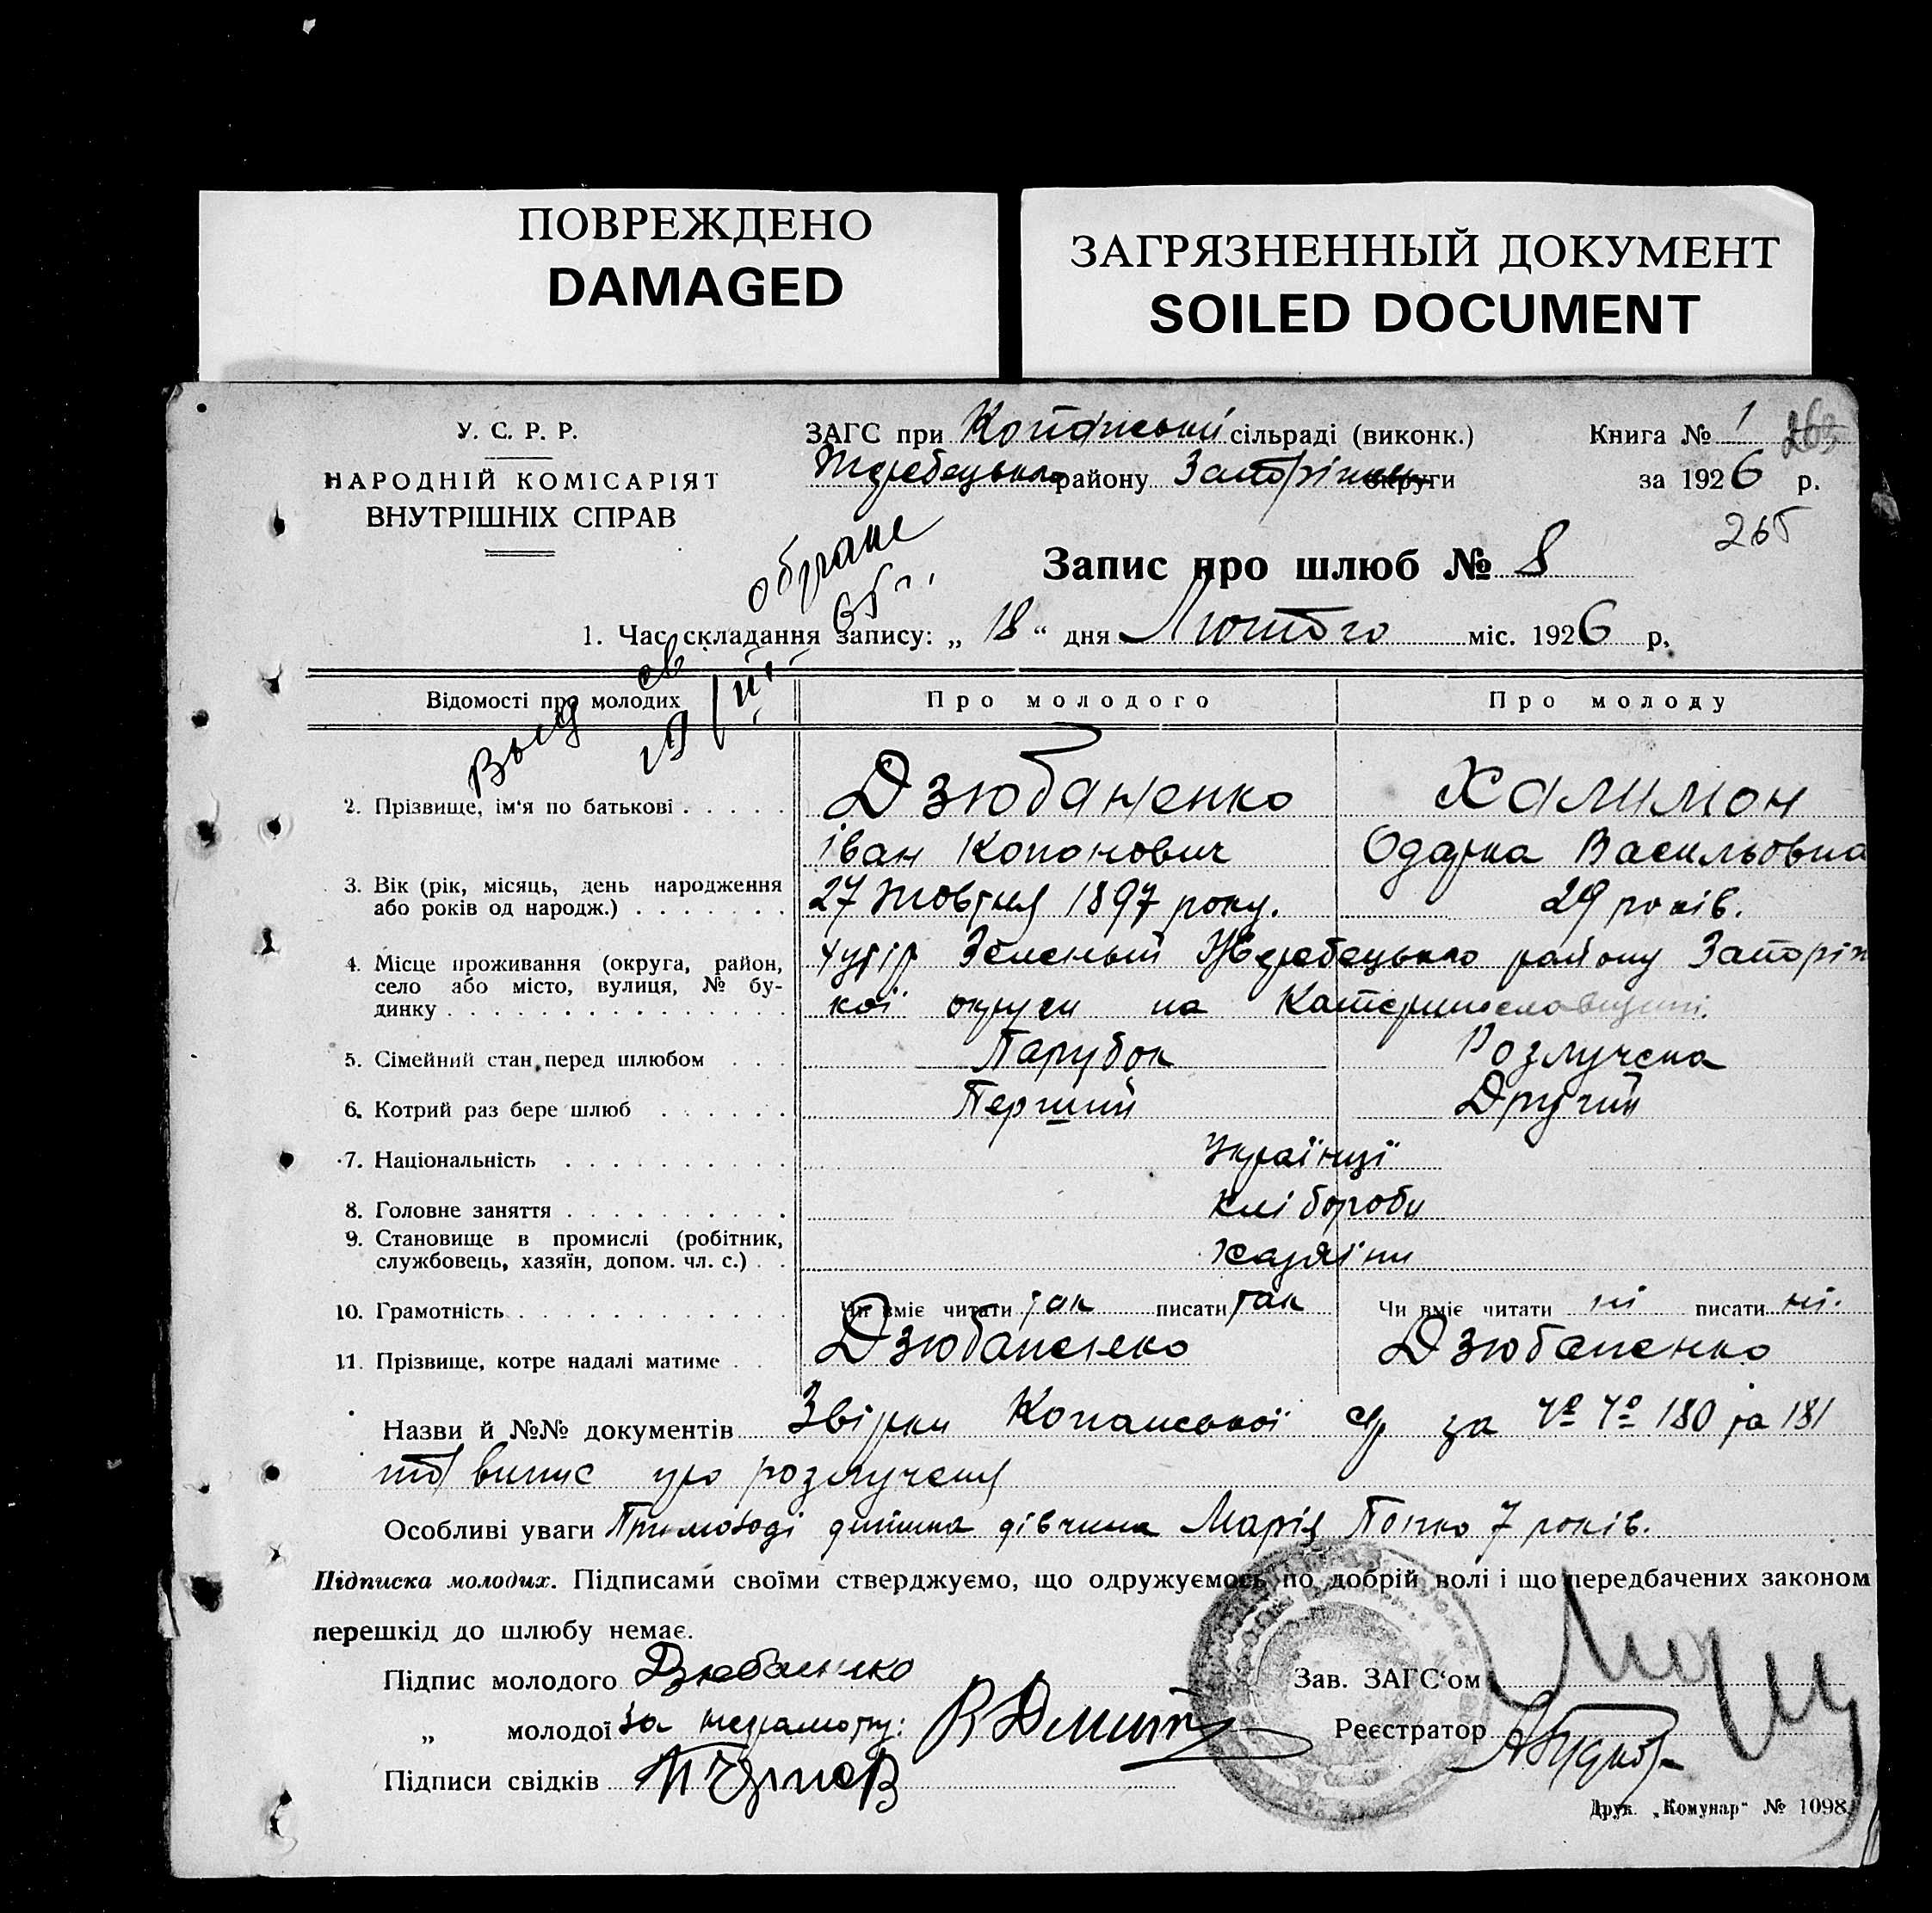 ПОВРЕЖДЕНО
DAMAGED
ЗАГРЯЗНЕННЫЙ ДОКУМЕНТ
SOILED DOCUMENT
У. С. Р. Р.
НАРОДНІЙ КОМІСАРІЯТ
ВНУТРІШНІХ СПРАВ
ЗАГС при Копанський сільраді (виконк.)
Жеребецького району Запоріжськ округи
Книга № 1
263
за 1926 р.
265
Запис про шлюб № 8
1. Час складання запису: „ 18 “ дня Лютого міс. 1926 р.
Відомості про молодих
Про молодого
Про молоду
2. Прізвище, ім'я по батькові
Дзюбаненко
Халимон
іван Копонович
Одарка Васильовна
3. Вік (рік, місяць, день народження
або років од народж.)
27 жовтня 1897 року.
29 років.
4. Місце проживання (округа, район,
село або місто, вулиця, № бу-
динку
Хутір Зеленый Жеребецького району Запоріж
кої округи на Катеринославщині.
5. Сімейний стан перед шлюбом
Парубок
Розлучена
6. Котрий раз бере шлюб
Перший
Другий
7. Національність
Українці
8. Головне заняття
Хлібороби
9. Становище в промислі (робітник,
службовець, хазяїн, допом. чл. с.)
хазяїни
10. Грамотність
Чи вміє читати так писати так
Чи вміє читати ні писати ні.
11. Прізвище, котре надалі матиме
Дзюбаненко
Дзюбаненко
Назви й №№ документів Звірки Копанської с/р за №№ 180 та 181
та випис про розлучення
Особливі уваги При молоді дитина дівчина Марія Попко 7 років.
Підписка молодих. Підписами своїми стверджуємо, що одружуємось по добрій волі і що передбачених законом
перешкід до шлюбу немає.
Підпис молодого Дзюбаненко
„ молодої За неграмотну:
Підписи свідків
Зав. ЗАГС'ом
Реєстратор
Друк. „Комунар“ № 1098